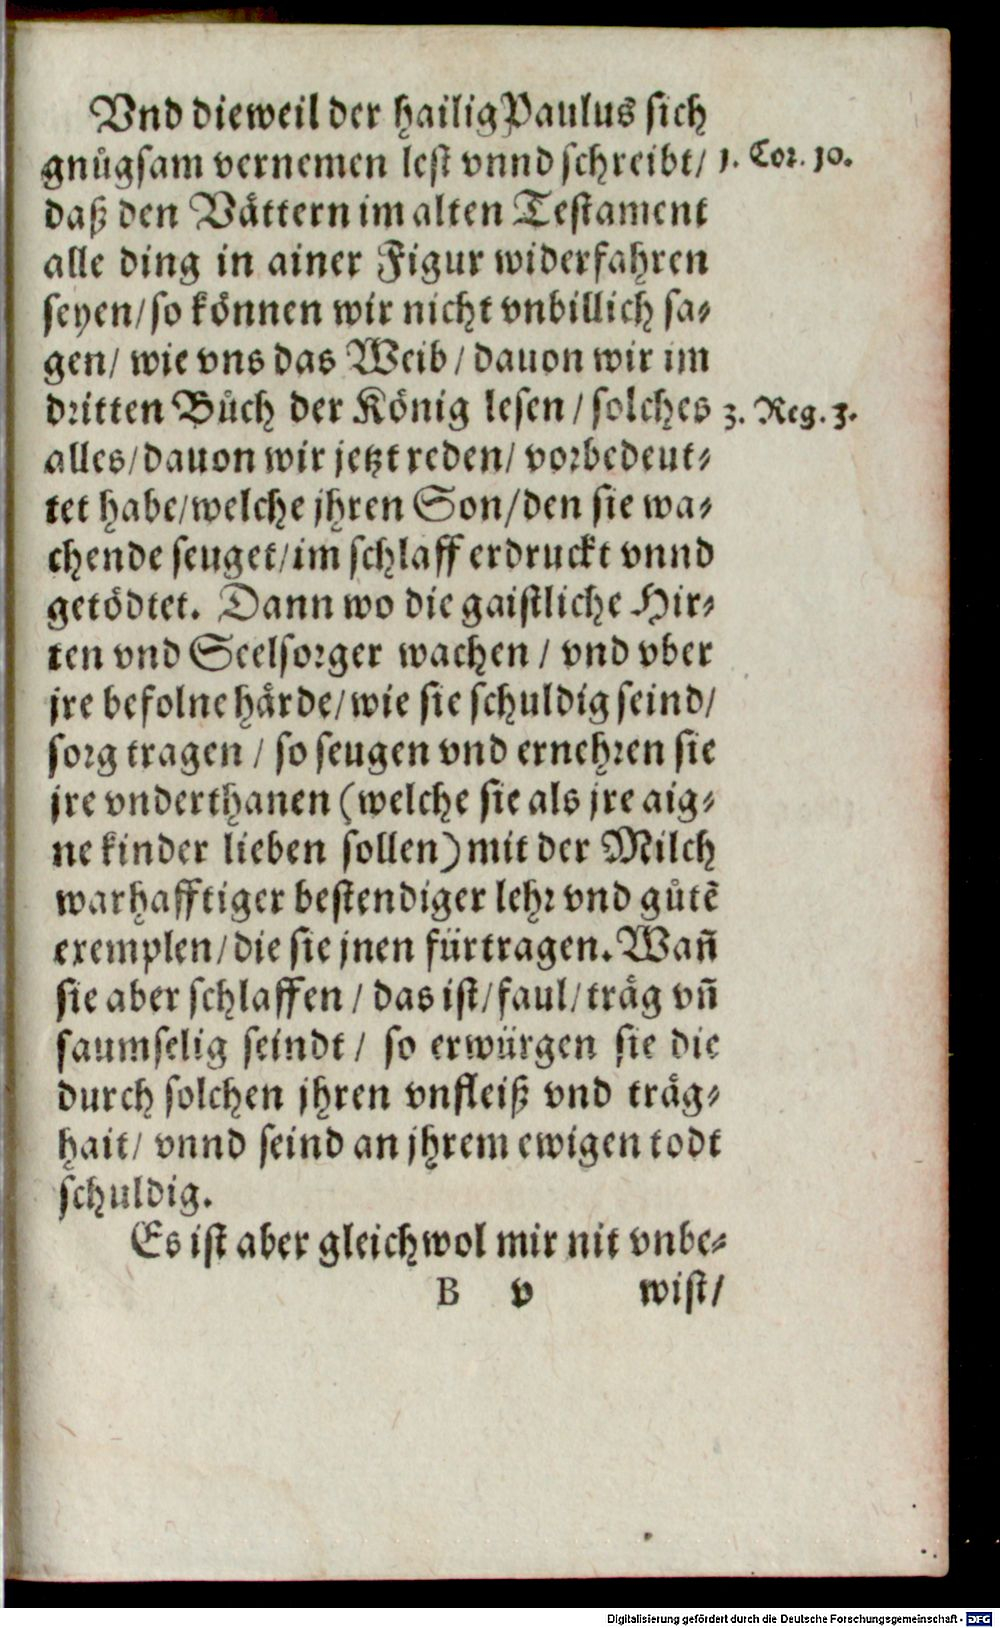 Vnd dieweil der hailig Paulus sich
gnůgsam vernemen lest vnnd schreibt/ 1. Cor. 10.
daß den Vättern im alten Testament
alle ding in ainer Figur widerfahren
seyen/ so können wir nicht vnbillich sa⸗
gen/ wie vns das Weib/ dauon wir im
dritten Bůch der König lesen/ solches 3. Reg. 3.
alles/ dauon wir jetzt reden/ vorbedeut⸗
tet habe/ welche jhren Son/ den sie wa⸗
chende seuget/ im schlaff erdruckt vnnd
getödtet. Dann wo die gaistliche Hir⸗
ten vnd Seelsorger wachen/ vnd vber
jre befolne härde/ wie sie schuldig seind/
sorg tragen/ so seugen vnd ernehren sie
jre vnderthanen (welche sie als jre aig⸗
ne kinder lieben sollen) mit der Milch
warhafftiger bestendiger lehr vnd gůtẽ
exemplen/ die sie jnen fürtragen. Wañ
sie aber schlaffen/ das ist/ faul/ träg vñ
saumselig seindt/ so erwürgen sie die
durch solchen jhren vnfleiß vnd träg⸗
hait/ vnnd seind an jhrem ewigen todt
schuldig.
Es ist aber gleichwol mir nit vnbe⸗
B v wist/
Digitalisierung gefördert durch die Deutsche Forschungsgemeinschaft - DFG